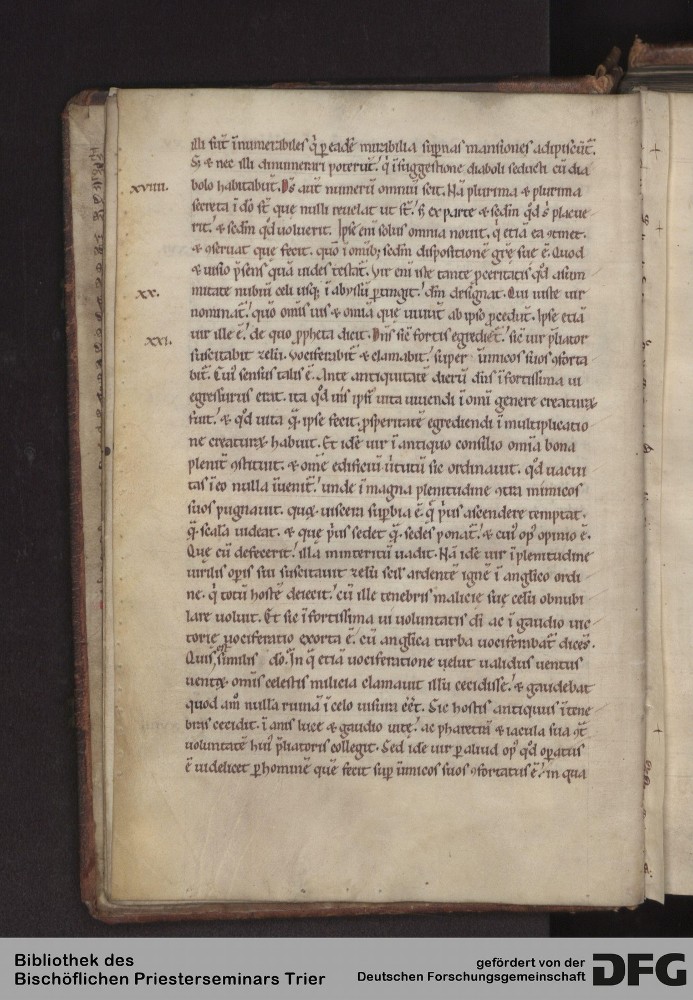 illi sūt īnumerabiles q̇ p̱ eadē mirabilia suꝑnas mansiones adipiscūt᷑.
S; & nec illi dinumerari poterūt. q̇ ī suggestione diaboli seducti cū dia
xviiii. bolo habitabūt. D̄s aūt numerū omniū scit. Nā plurima & plurima
secreta ī dō st̄ que nulli reuelat ut st̄. s; ex parte & sc̄dm qd̓ s; placue
rit. & sc̄dm qd̓ uoluerit. Ipse eni solus omnia nouit. q̇ etiā ea ꝯtinet.
& ꝯseruat que fecit. quō ī omīb; sc̄dm dispositionē gr̄e sue ē. Quod
& uisio p̄sens quā uides testat᷑. Vir eni iste tante ꝓceritatis qd̓ a sum
xx. mitate nubiū celi usq; ī abyssū ꝑtingit. dm̄ designat. Qui iuste uir
nominat᷑. quō omīs uis & omīa que uiuūt ab ipso ꝓcedūt. Ipse etiā
xxi. uir ille ē. de quo ꝓpheta dicit. Dn̄s sic fortis egrediet᷑. sic uir p̄liator
suscitabit zelū. uociferabit᷑ & clamabit. super inimicos suos ꝯforta
bit᷑. Cui sensus talis ē. Ante antiquitatē dierū dn̄s ī fortissima ui
egressurus erat. ita qd̓ uis ipsi uita uiuendi ī omī genere creaturaꝝ
fuit. & qd̓ uita q̄ ipse fecit. ꝓsperitatē egrediendi ī multiplicatio
ne creaturaꝝ habuit. Et idē uir ī antiquo consilio omīa bona
plenit᷑ ꝯstituit. & omē edificiū uirtutū sic ordinauit. qd̓ uacui
tas ī eo nulla īuenit᷑. unde ī magna plenitudine ꝯtra inimicos
suos pugnauit. quaꝝ uiscera suꝑbia ē. q̄ p̓us ascendere temptat.
q̄ scala uideat. & que p̓us sedet q̄ sedes ponat᷑. & cui᷒ op᷒ opinio ē.
Que cū defecerit. illa in interitū uadit. Nā idē uir ī plenitudine
uirilis oꝑis sui suscitauit zelū scil᷒ ardentē ignē ī anglico ordi
ne. q̇ totū hostē deiecit. cū ille tenebris malicie suę celū obnubi
lare uoluit. Et sic ī fortissima ui uoluntatis dī ac ī gaudio uic
torie uociferatio exorta ē. cū anglica turba uociferabat᷑ dicēs.
Quis similis dō. In q̄ etiā uociferatione uelut ualidus uentus
uentoꝝ. omīs celestis milicia clamauit illū cecidisse. & gaudebat
quod am̄ nulla ruina ī celo uisura eēt. Sic hostis antiquus ī tene
bras cecidit. ī anīs luce & gaudio uitę. ac pharetrā & iacula sua ꝯt᷑
uoluntatē hui᷒ p̄liatoris collegit. Sed idē uir ꝑ aliud op᷒ qd̓ oꝑatus
ē uidelicet ꝑ hominē quē fecit suꝑ inimicos suos ꝯfortatus ē. in qua
Bibliothek des
Bischöflichen Priesterseminars Trier
gefördert von der
Deutschen Forschungsgemeinschaft
DFG